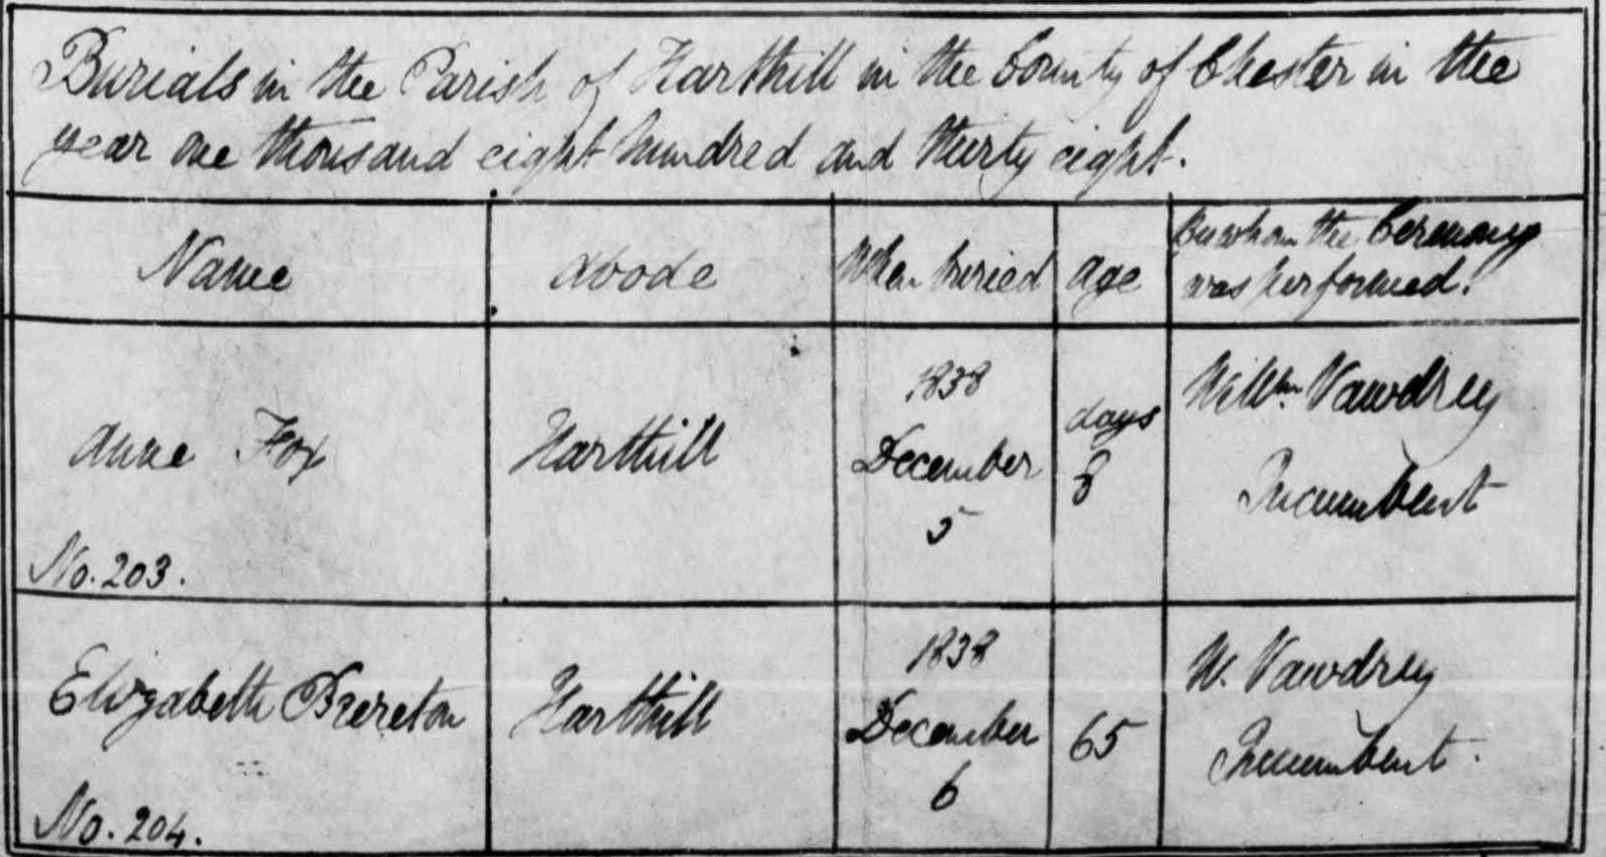 Burials in the Parish of Harthill in the County of Chester in the
year one thousand eight hundred and thirty eight.
Name
abode
When buried
age
By whom the Ceremony
was performed.
Anne Fox
No. 203.
Harthill
1838
December
5
days
8
Willm. Vawdrey
Incumbent
Elizabeth Brereton
No. 204.
Harthill
1838
December
6
65
W. Vawdrey
Incumbent.